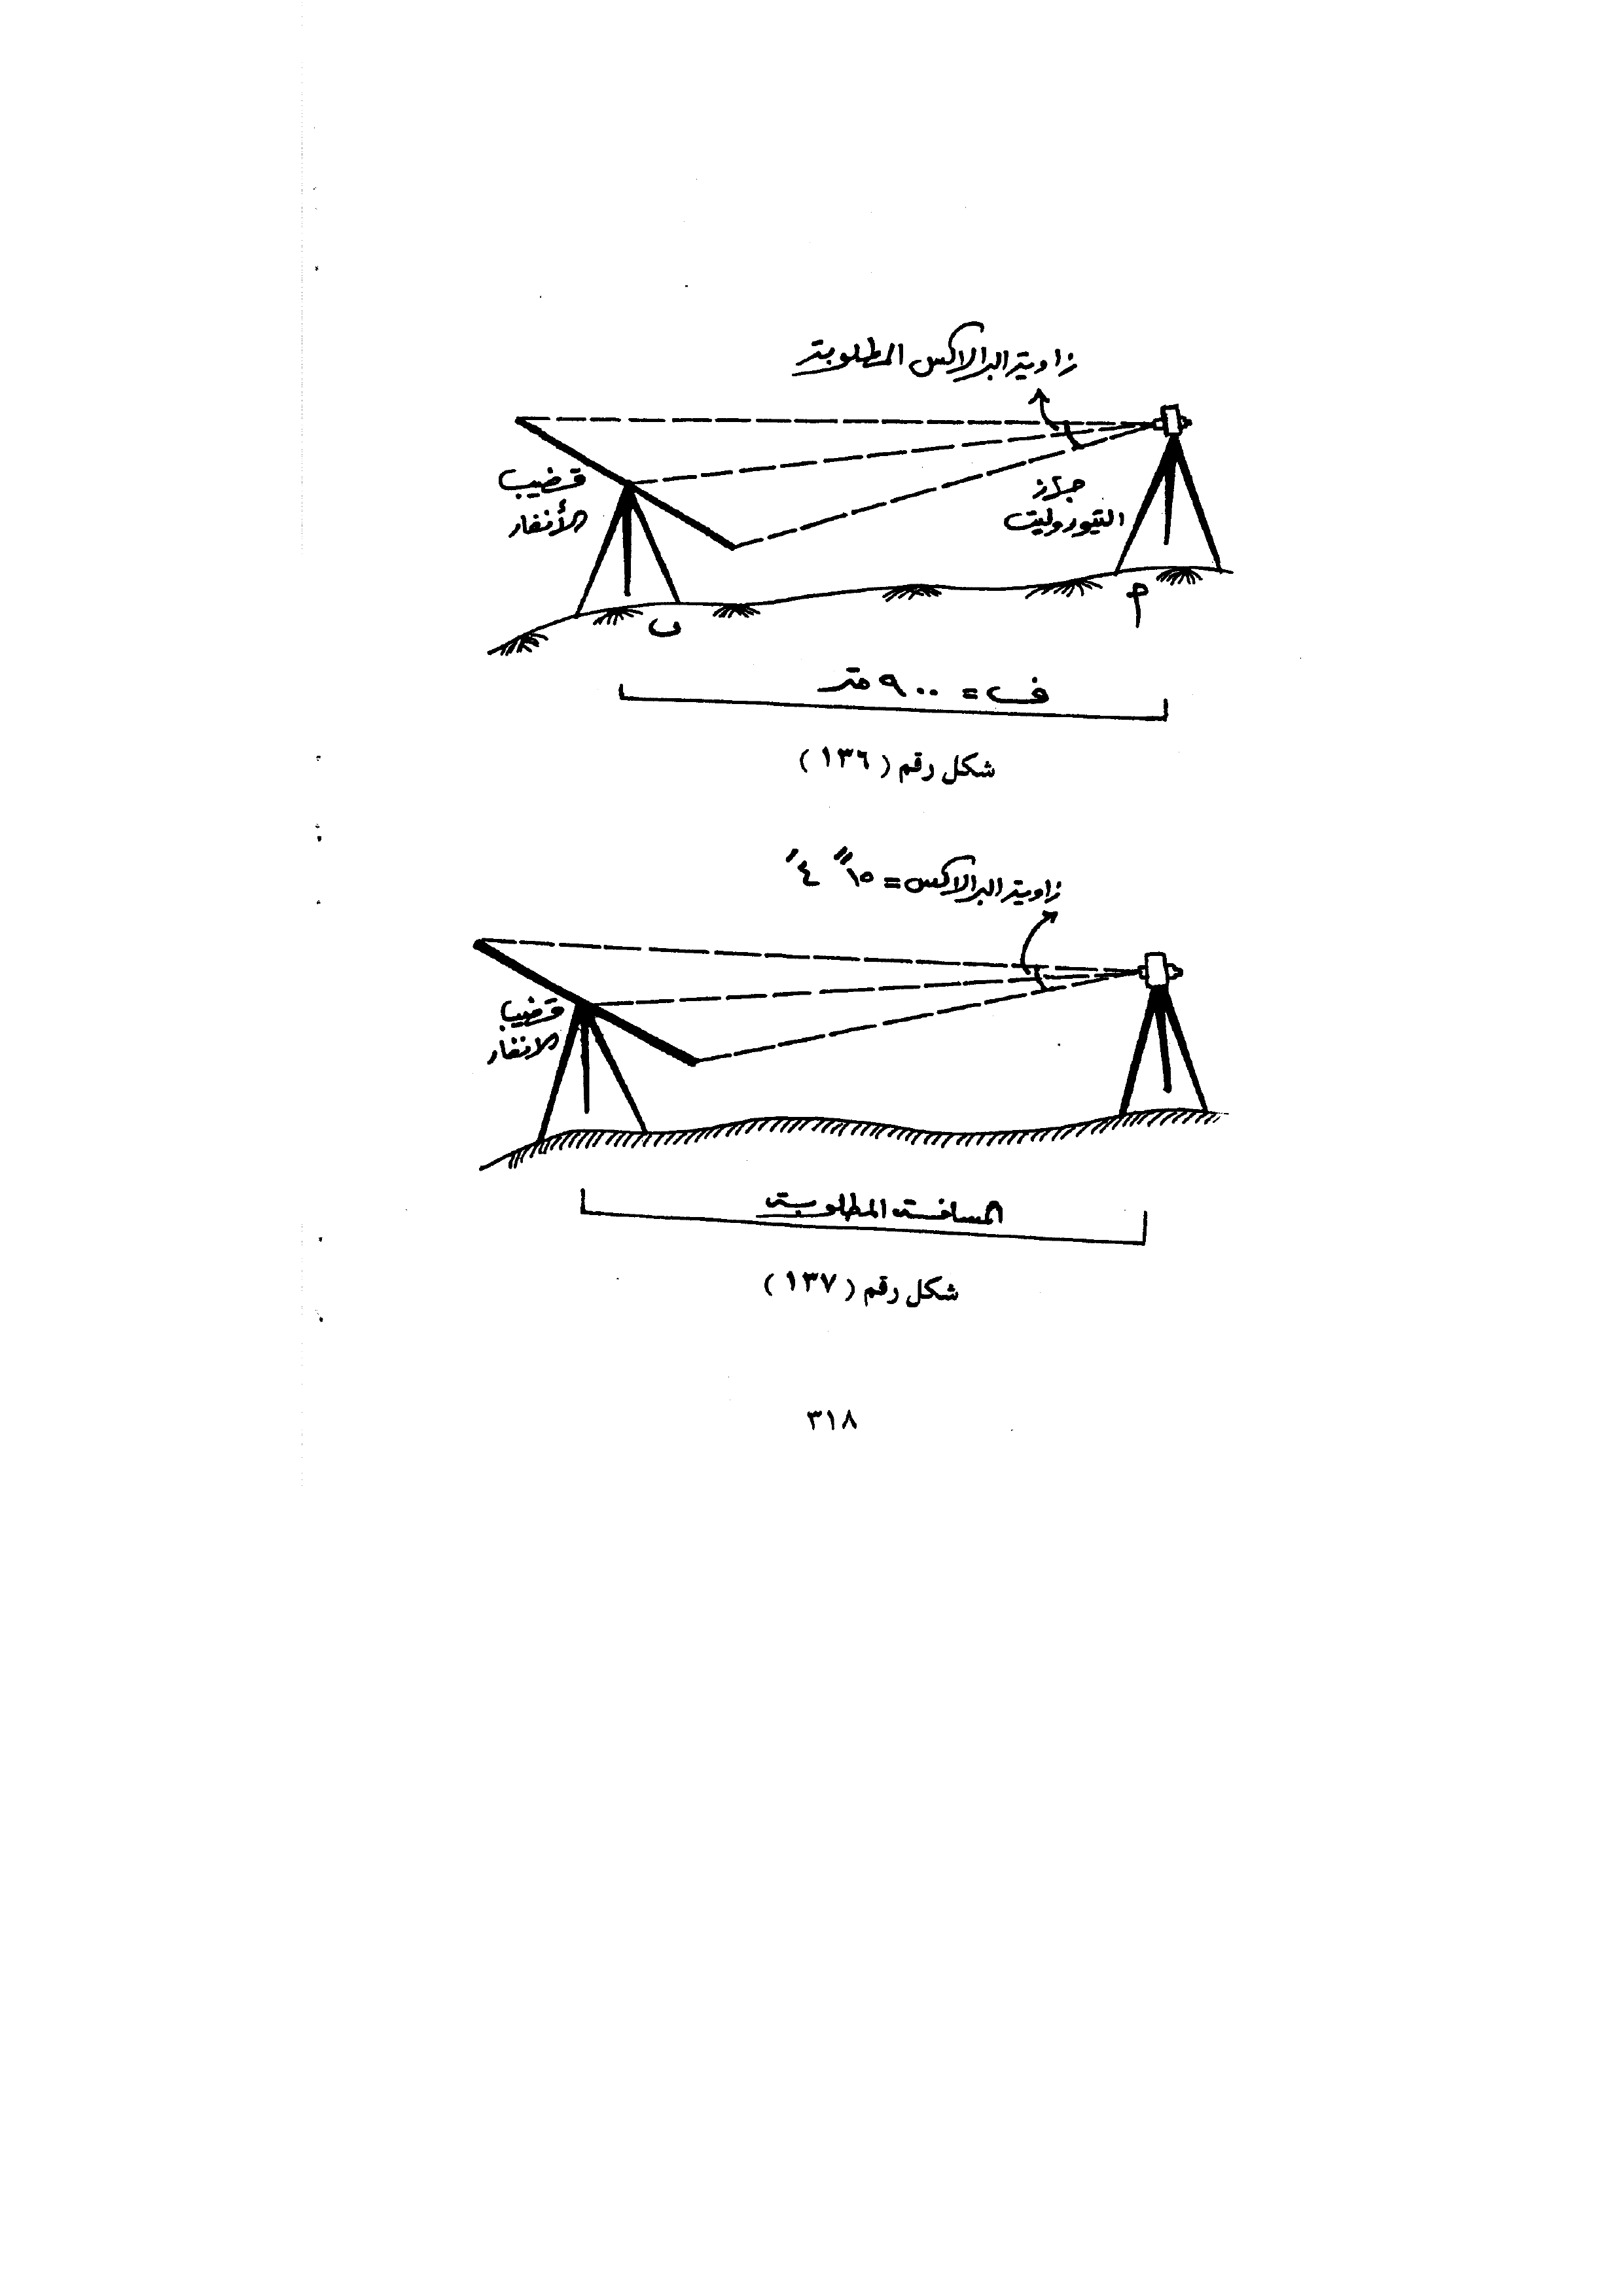 زاوية البرالاكس المطلوبة
قضيب
الأنفار
جهاز
التيودوليت
م
ب
ف = ٩٠٠ متر
شكل رقم ( ١٣٦ )
زاوية البرالاكس = ١٥ ً ٤ َ
قضيب
الانفار
المسافة المطلوبة
شكل رقم ( ١٣٧ )
٣١٨